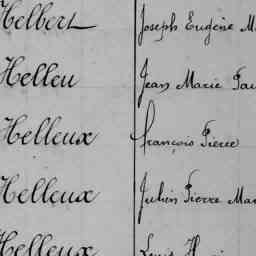 Helbert Joseph Eugène M
Helleu Jean Marie Pau
Helleux François Pierre
Helleux Julien Pierre Mar
Helleux Louis